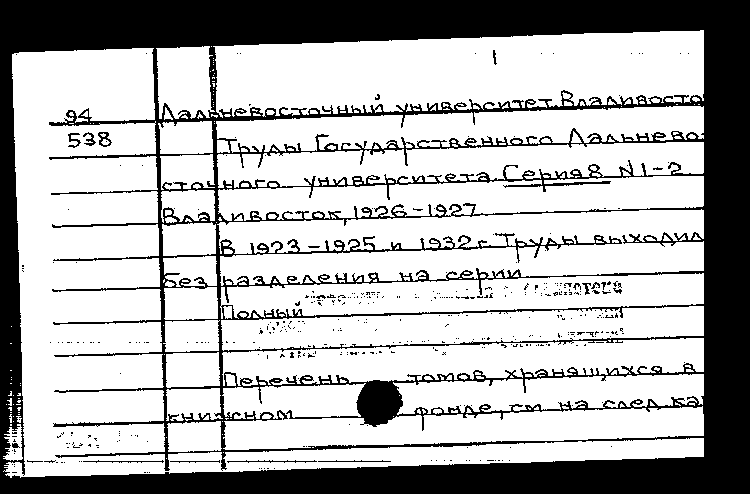 94 Дальневосточный университет. Владивосто
538 Труды Государственного Дальнево-
сточного университета. Серия 8 N 1-2
Владивосток, 1926-1927
В 1923-1925 и 1932г. Труды выходил
без разделения на серии
Полный
Перечень томов, хранящихся в
книжном фонде, см на след ка